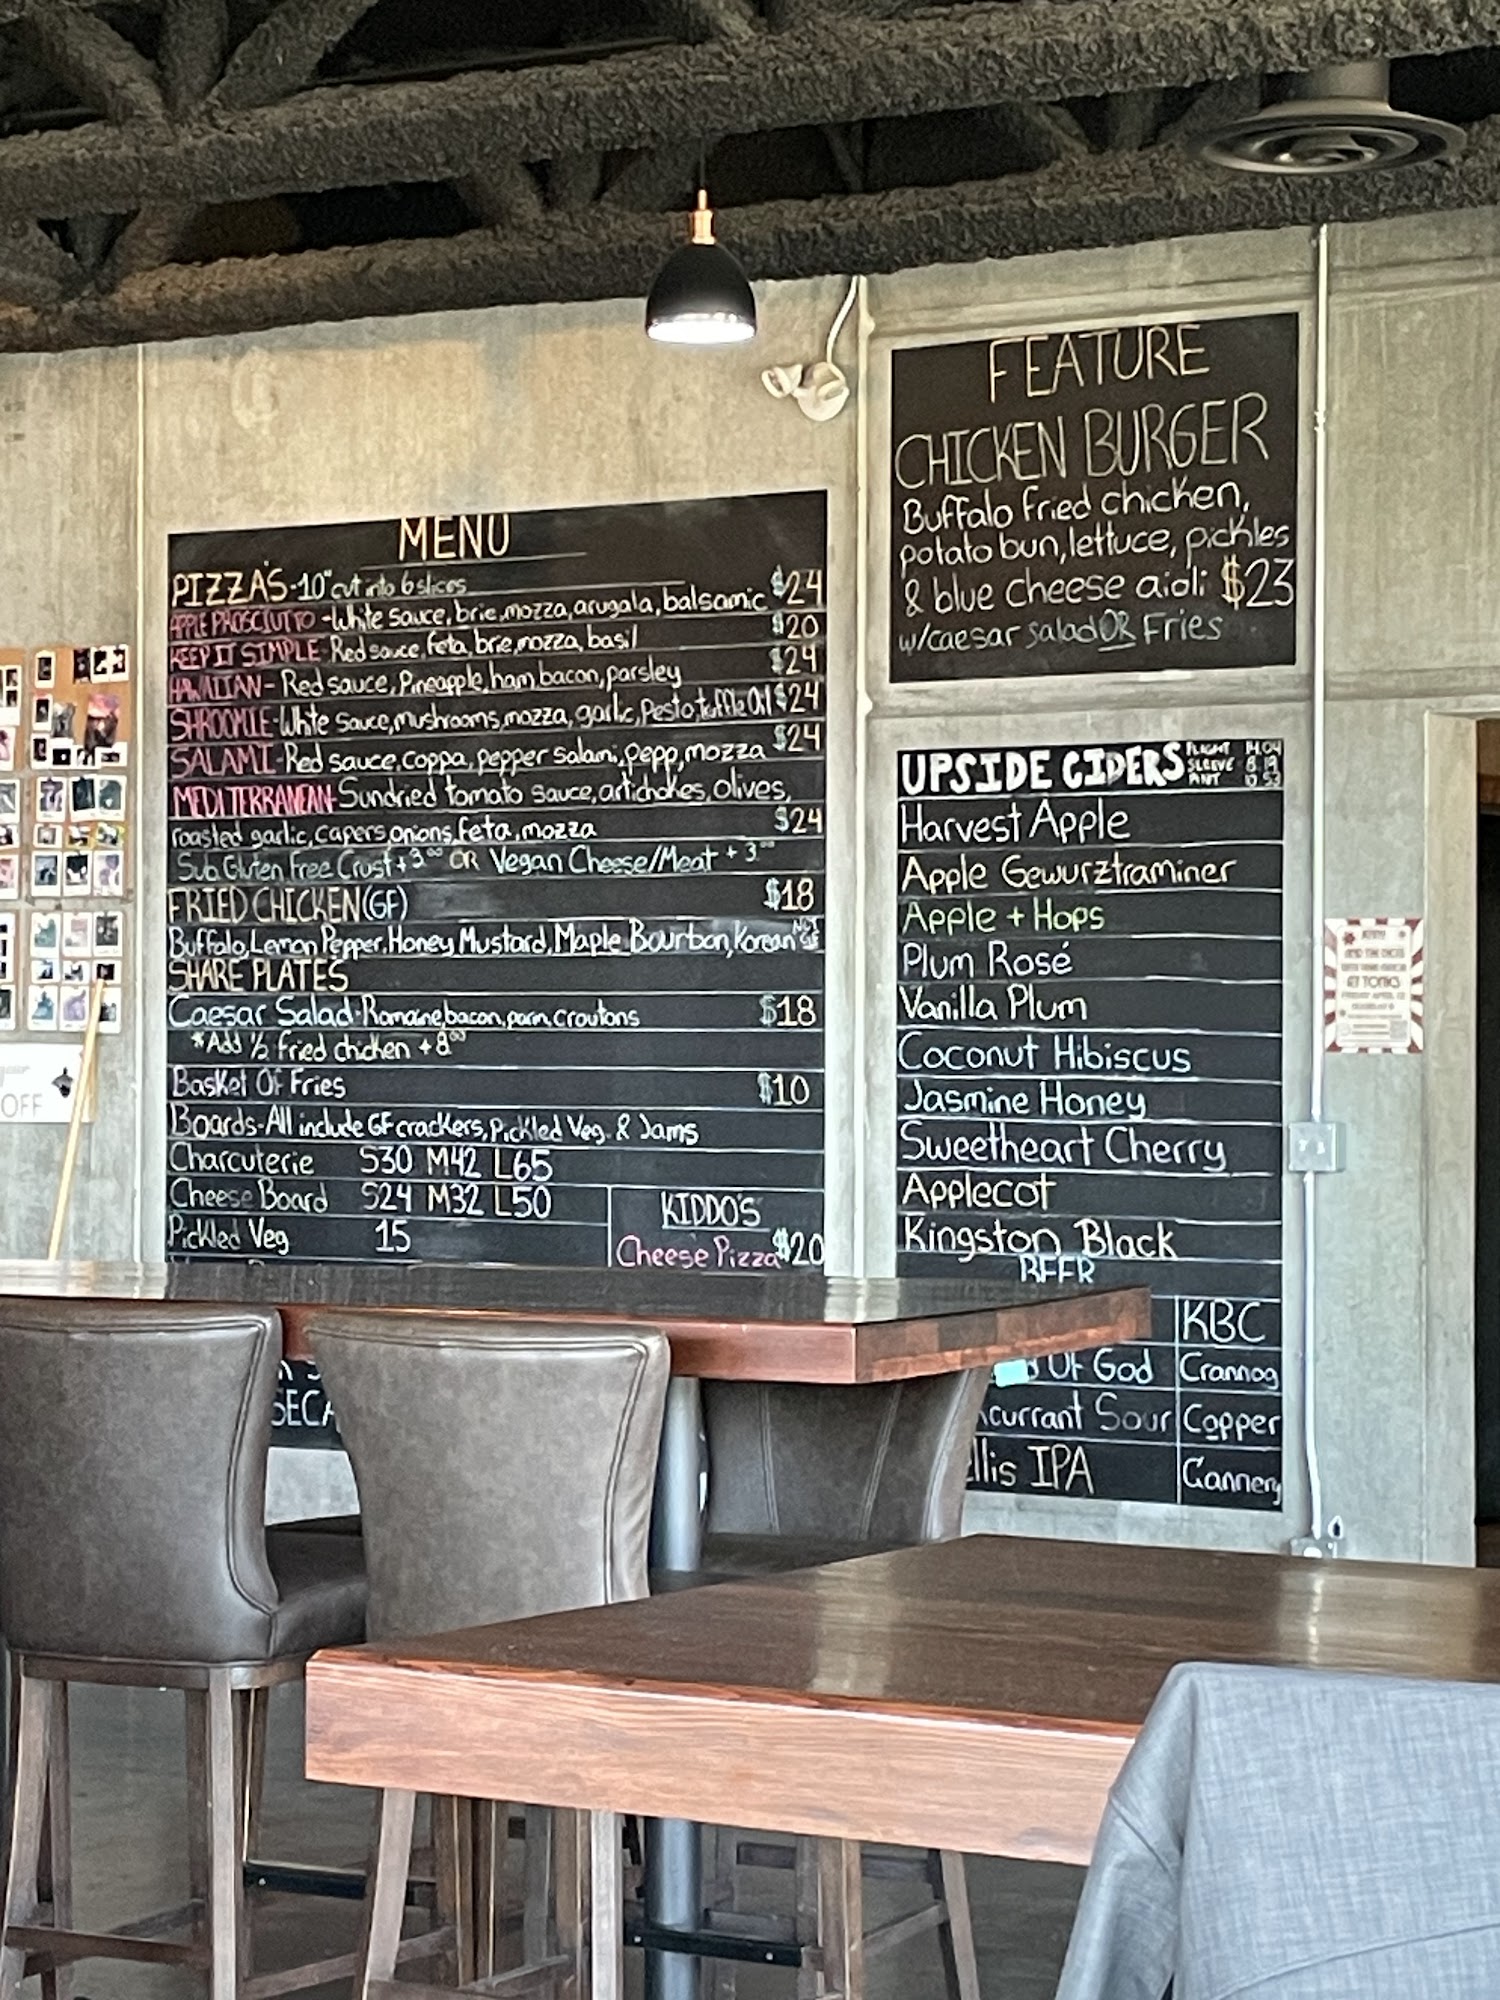 MENU
PIZZA'S-10" cut into 6 slices
$24
APPLE PROSCIUTTO -White sauce, brie, mozza, arugala, balsamic
$20
KEEP IT SIMPLE-Red sauce, feta, brie, mozza, basil
$24
HAWAIIAN- Red sauce, Pineapple, ham, bacon, parsley
SHROOMIE-White sauce, mushrooms, mozza, garlic, Pesto, truffle Oil $24
$24
SALAMI-Red sauce, coppa, pepper salami, pepp, mozza
MEDITERRANEAN-Sundried tomato sauce, artichokes, olives,
roasted garlic, capers, onions, feta, mozza $24
Sub Gluten Free Crust +3.00 OR Vegan Cheese/Meat +3.00
FRIED CHICKEN(GF) $18
Buffalo, Lemon Pepper, Honey Mustard, Maple Bourbon, Korean NOT GF
SHARE PLATES
Caesar Salad-Romaine, bacon, parm, croutons $18
*Add ½ fried chicken +8.00
Basket Of Fries $10
Boards-All include GF crackers, Pickled Veg. & Jams
Charcuterie S30 M42 L65
Cheese Board S24 M32 L50
Pickled Veg 15
KIDDO'S
Cheese Pizza $20
FEATURE
CHICKEN BURGER
Buffalo fried chicken,
potato bun, lettuce, pickles
& blue cheese aioli $23
w/caesar salad OR Fries
UPSIDE CIDERS
FLIGHT 14.04
SLEEVE 8.19
PINT 10.53
Harvest Apple
Apple Gewurztraminer
Apple + Hops
Plum Rosé
Vanilla Plum
Coconut Hibiscus
Jasmine Honey
Sweetheart Cherry
Applecot
Kingston Black
BEER
KBC
Of God Crannog
Sour Copper
IPA Cannery
OFF
AT TONKS